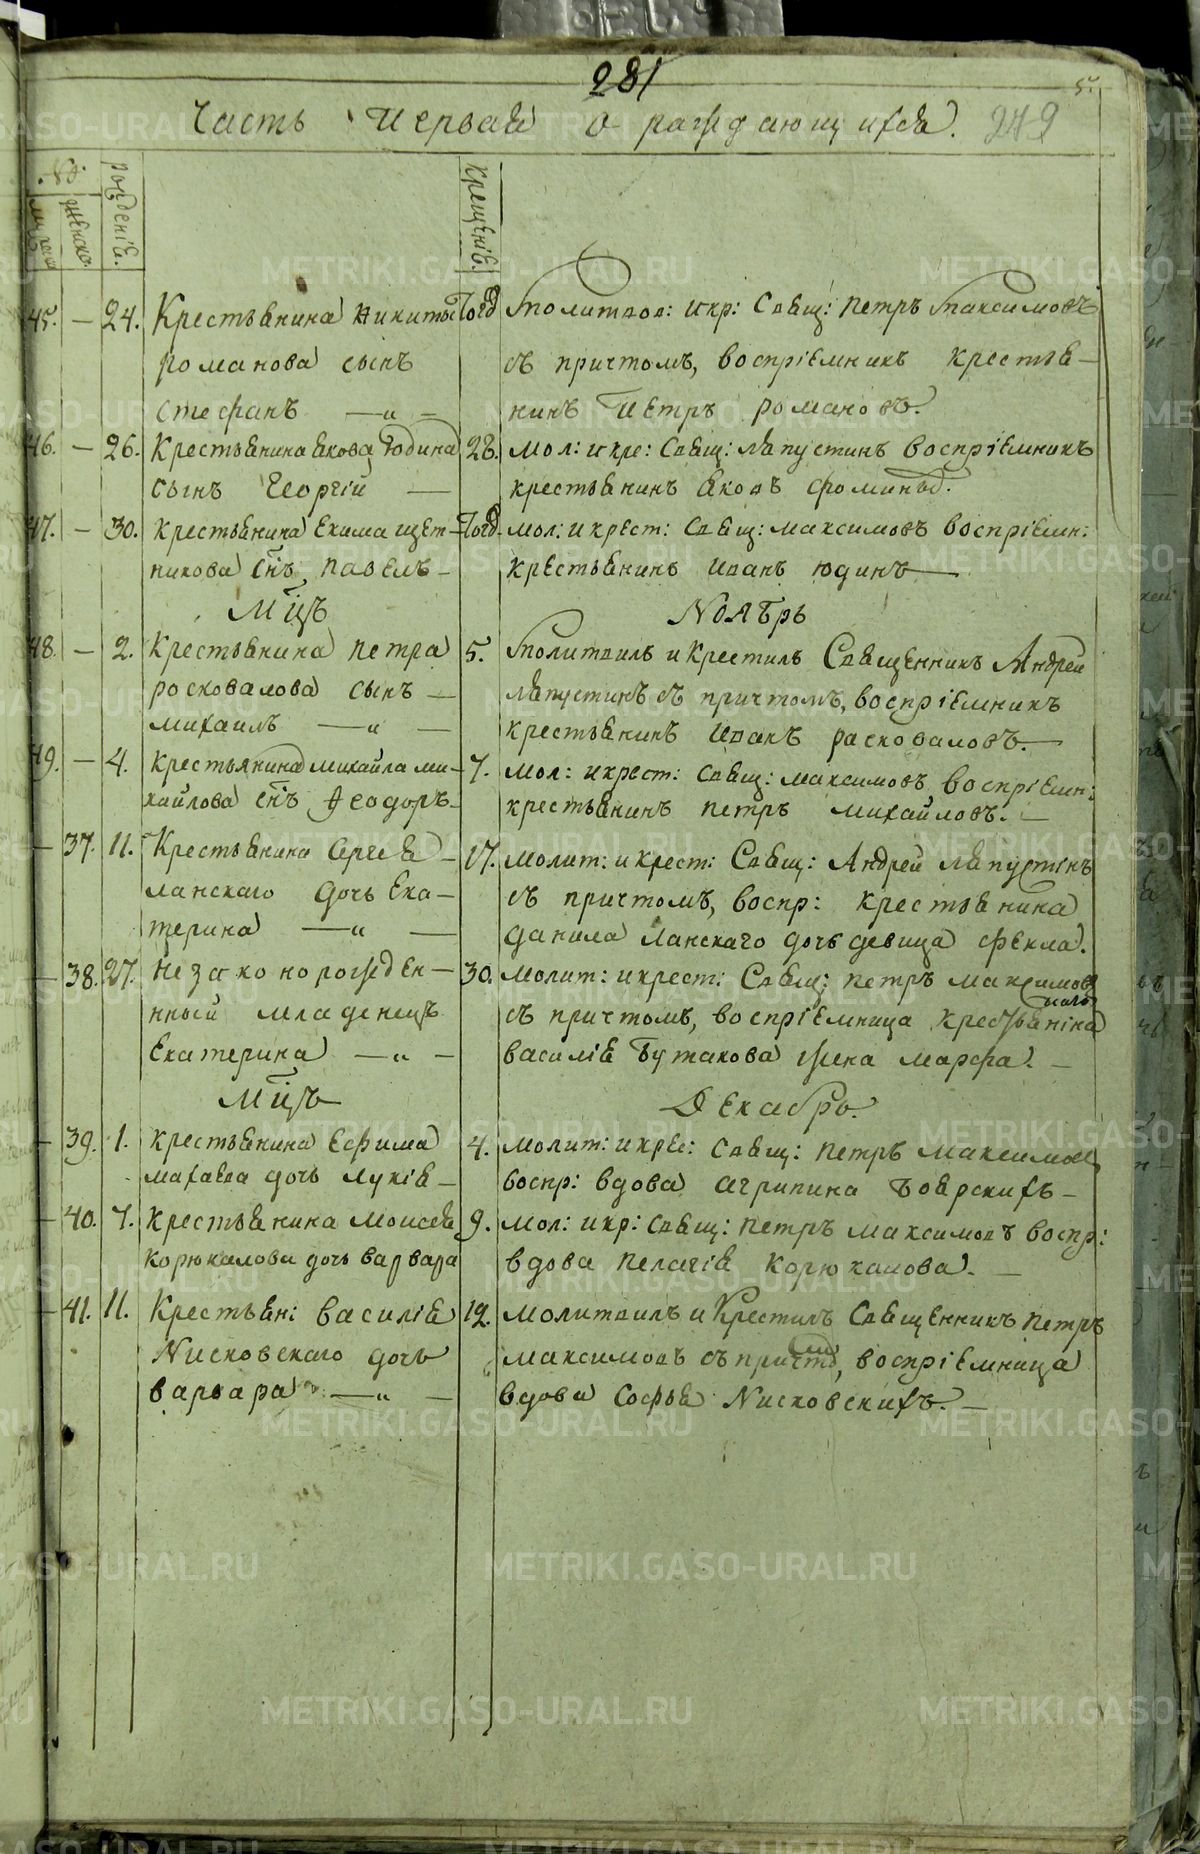 281
5
Часть Первая о раждающихся. 249
№.
мужеска
женска.
рождение.
Крещение.
45. — 24. Крестьянина Никиты Тогд Молитвов: и кр: Свящ: Петръ Максимовъ
Романова сынъ съ причтомъ, воспріемникъ крестья-
Стефанъ — „ — нинъ Петръ Романовъ.
46. — 26. Крестьянина Якова Юдина 28. Мол: и кре: Свящ: Лапустинъ воспріемникъ
сынъ Георгій — крестьянинъ Яковъ Фоминыхъ.
47. — 30. крестьянина Екима Щет- Тогд. мол: и крест: Свящ: Максимовъ воспріемн:
никова снъ Павелъ — крестьянинъ Иванъ Юдинъ —
Мцъ Ноябрь
48. — 2. Крестьянина Петра 5. Молитвилъ и Крестилъ Священникъ Андрей
Росковалова сынъ — Лапустинъ съ причтомъ, воспріемникъ
Михаилъ — „ — крестьянинъ Иванъ Расковаловъ. —
49. — 4. Крестьянина Михаила Ми- 7. Мол: и крест: Свящ: Максимовъ воспріемн:
хайлова снъ Феодоръ — крестьянинъ Петръ Михайловъ. —
— 37. 11. Крестьянина Сергея — 17. Молит: и крест: Свящ: Андрей Лапустинъ
Ланскаго дочь Ека- съ причтомъ, воспр: крестьянина
терина — „ — Данила Ланскаго дочь девица Фекла.
— 38. 27. Незаконорожден- 30. Молит: и крест: Свящ: Петръ Максимов
нный младенецъ съ причтомъ, воспріемница крестьянина
Екатерина — „ — Василія Бутакова жена Марфа. —
Мцъ Декабрь.
— 39. 1. Крестьянина Ефима 4. Молит: и крес: Свящ: Петръ Максимов
Махаева дочь Лукія — воспр: вдова Агрипина Боярскихъ —
— 40. 7. Крестьянина Моисея 9. Мол: и кр: Свящ: Петръ Максимовъ воспр:
Корюкалова дочь Варвара вдова Пелагія Корюкалова. —
— 41. 11. Крестьяні Василія 12. Молитвилъ и Крестилъ Священникъ Петръ
Нисковскаго дочь Максимовъ съ причтомъ, воспріемница
Варвара — „ — вдова Софья Нисковскихъ. —